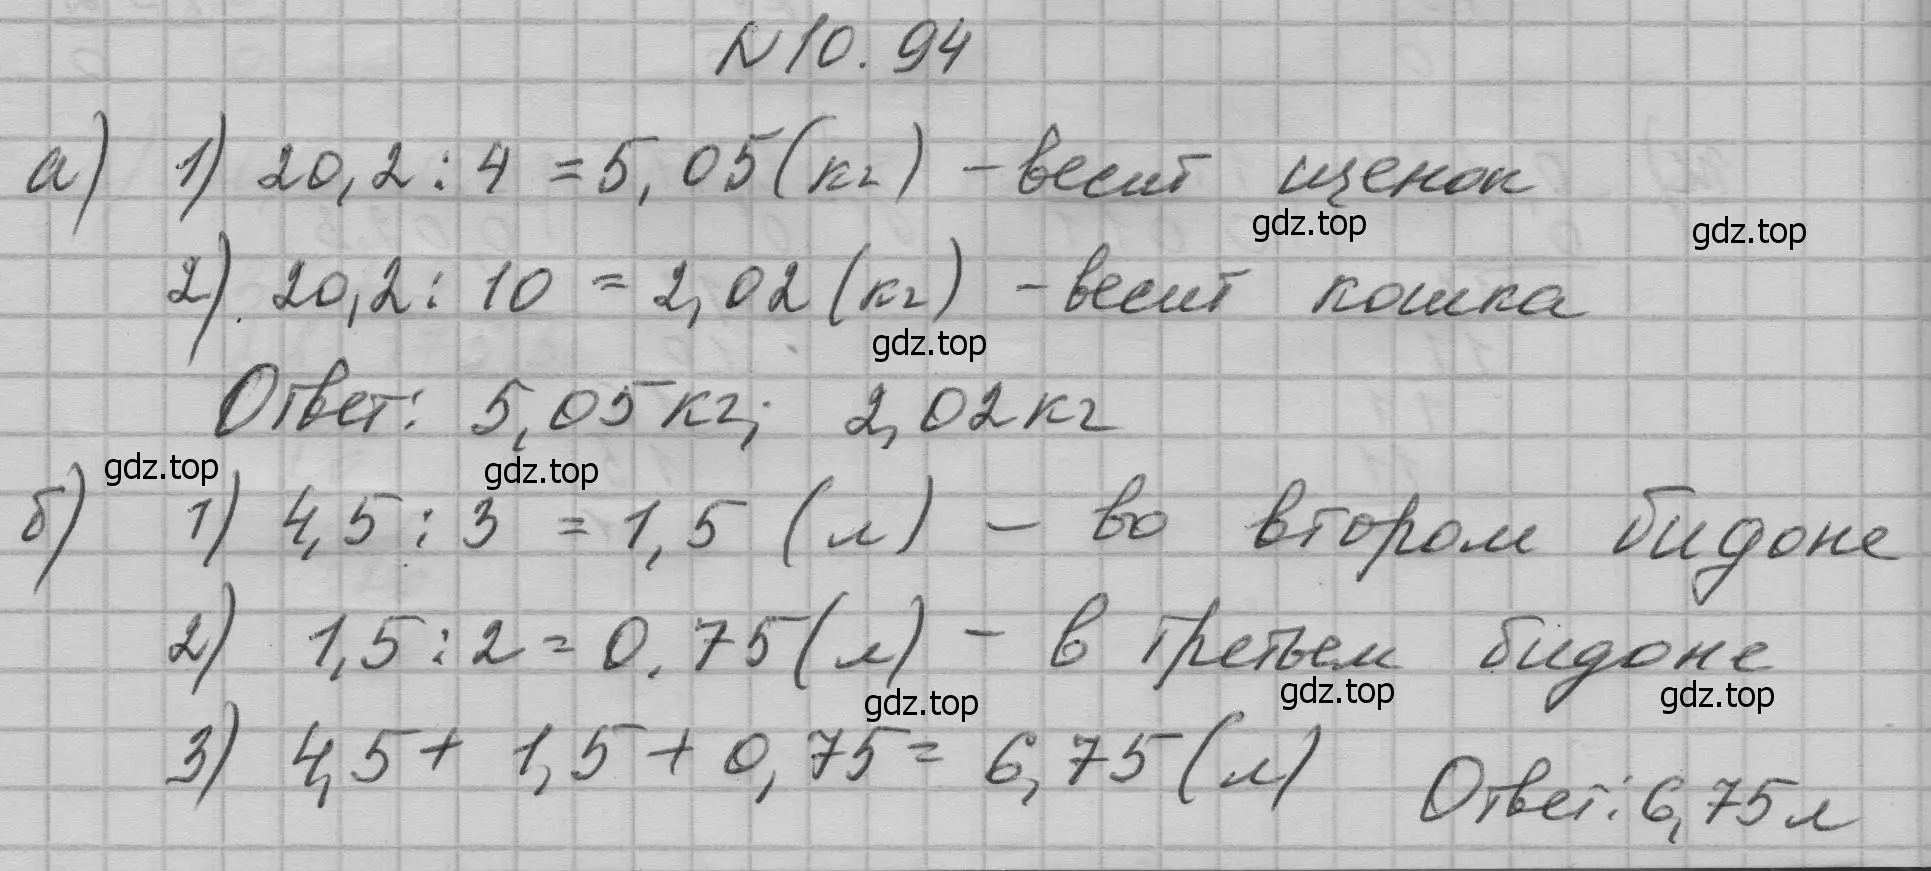 N 10.94
а) 1) 20,2 : 4 = 5,05 (кг) - весит щенок
gdz.top
gdz.top
2). 20,2 : 10 = 2,02 (кг) - весит кошка
gdz.top
Ответ: 5,05 кг; 2,02 кг
gdz.top
gdz.top
б) 1) 4,5 : 3 = 1,5 (л) - во втором бидоне
2) 1,5 : 2 = 0,75 (л) - в третьем бидоне
gdz.top
gdz.top
gdz.top
3) 4,5 + 1,5 + 0,75 = 6,75 (л) Ответ: 6,75 л